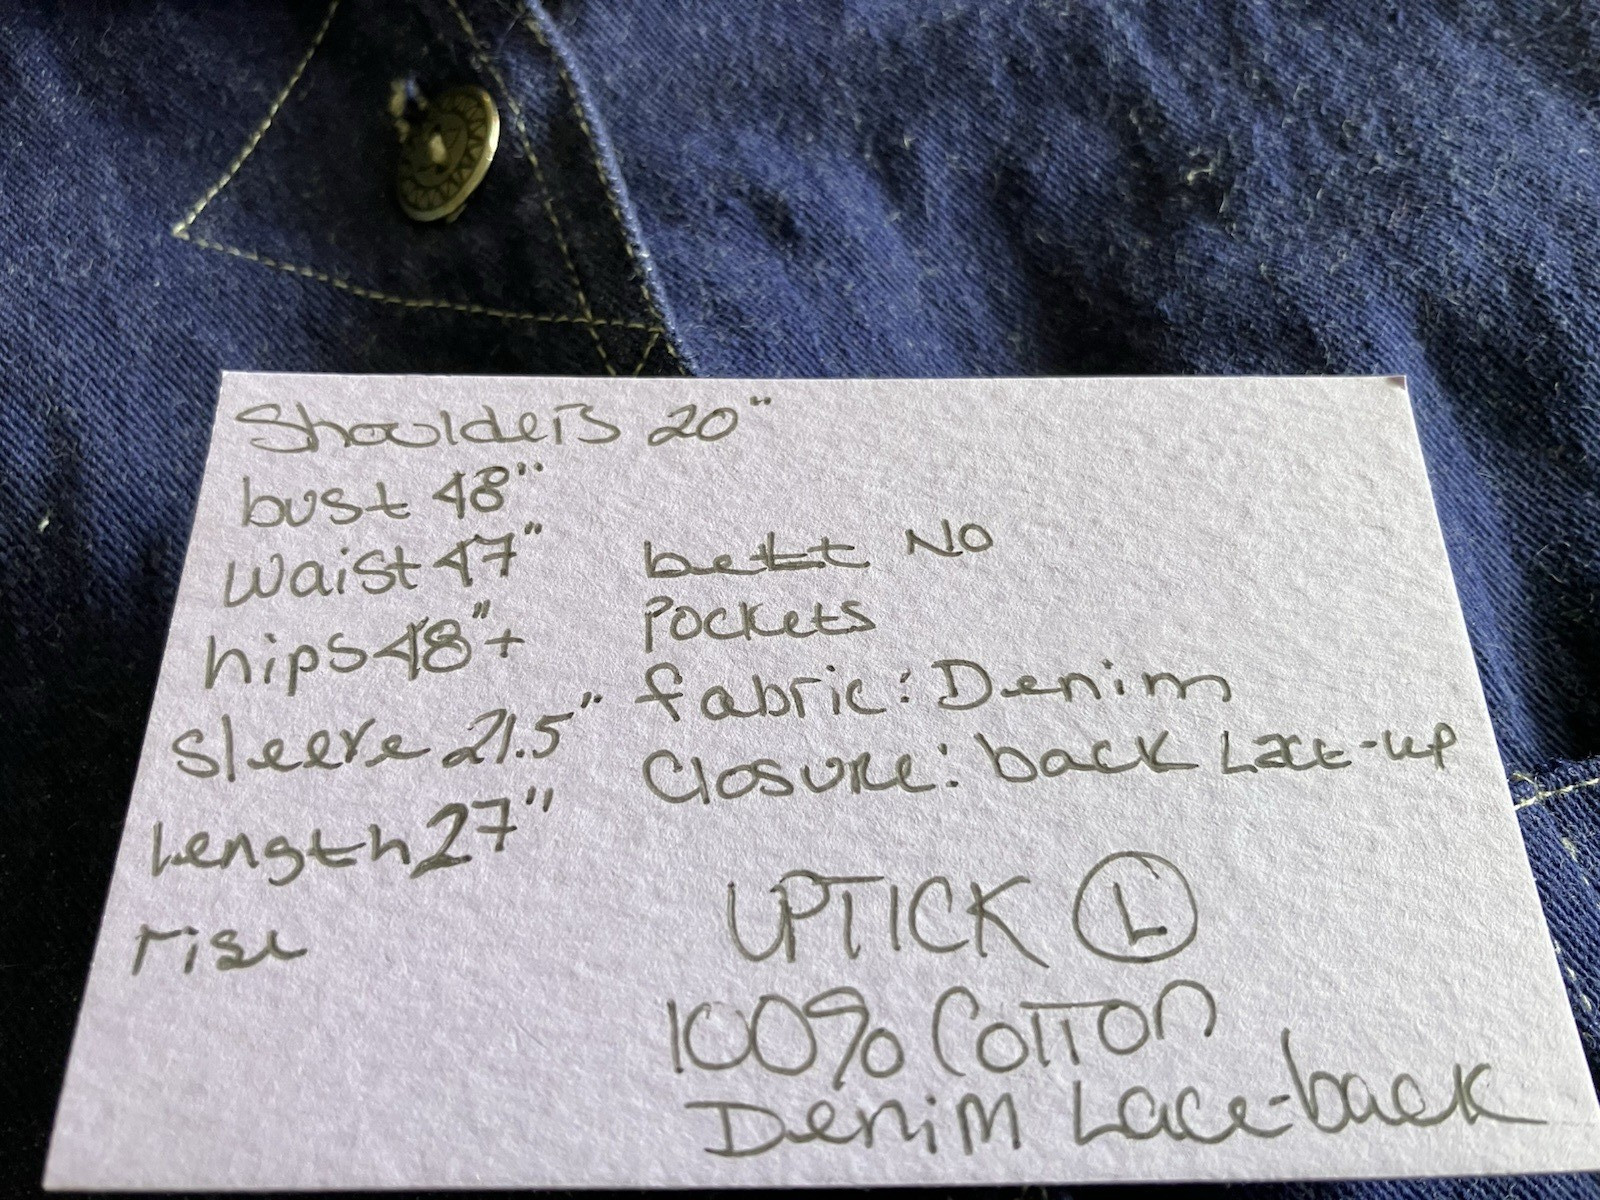 Shoulders 20"
bust 48"
waist 47"
hips 48"+
sleeve 21.5"
Length 27"
rise
belt NO
Pockets
fabric: Denim
Closure: back Lace-up
UPTICK L
100% COTTON
Denim Lace-back